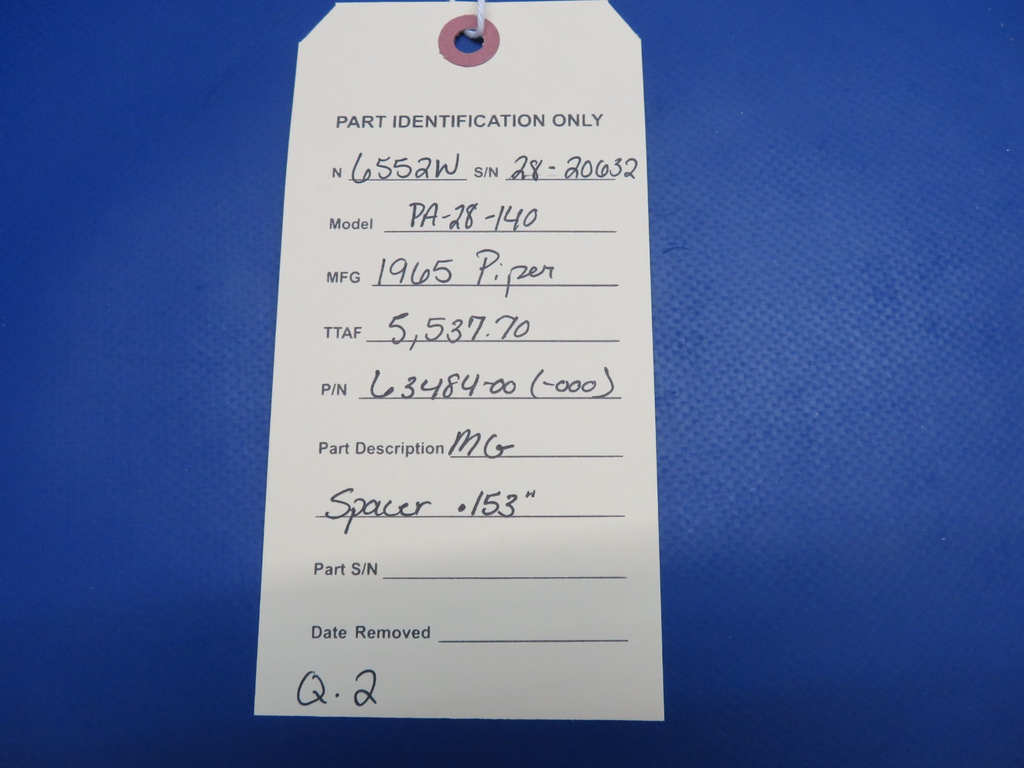 PART IDENTIFICATION ONLY
N 6552W S/N 28-20632
Model PA-28-140
MFG 1965 Piper
TTAF 5,537.70
P/N 63484-00 (-000)
Part Description MG
Spacer .153"
Part S/N
Date Removed
Q.2